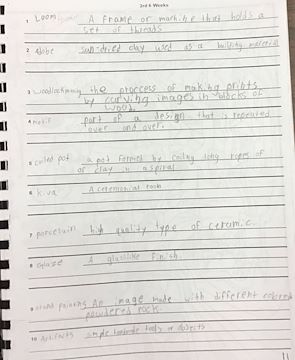 3rd 6 Weeks
1 Loom A frame or machine that holds a
set of threads
2 Adobe sun-dried clay used as a building material
3 woodblock the proccess of making prints
by carving images in blocks of
wood.
4 Motif part of a design that is repeated
over and over.
5 coiled pot a pot formed by coiling long ropes of
clay in a spiral
6 kiva A ceremonial room
7 porcelain high quality type of ceramic.
8 Glaze A glasslike finish
9 sand painting An image made with different colored
powdered rock.
10 Artifacts simple handmade tools or objects
11